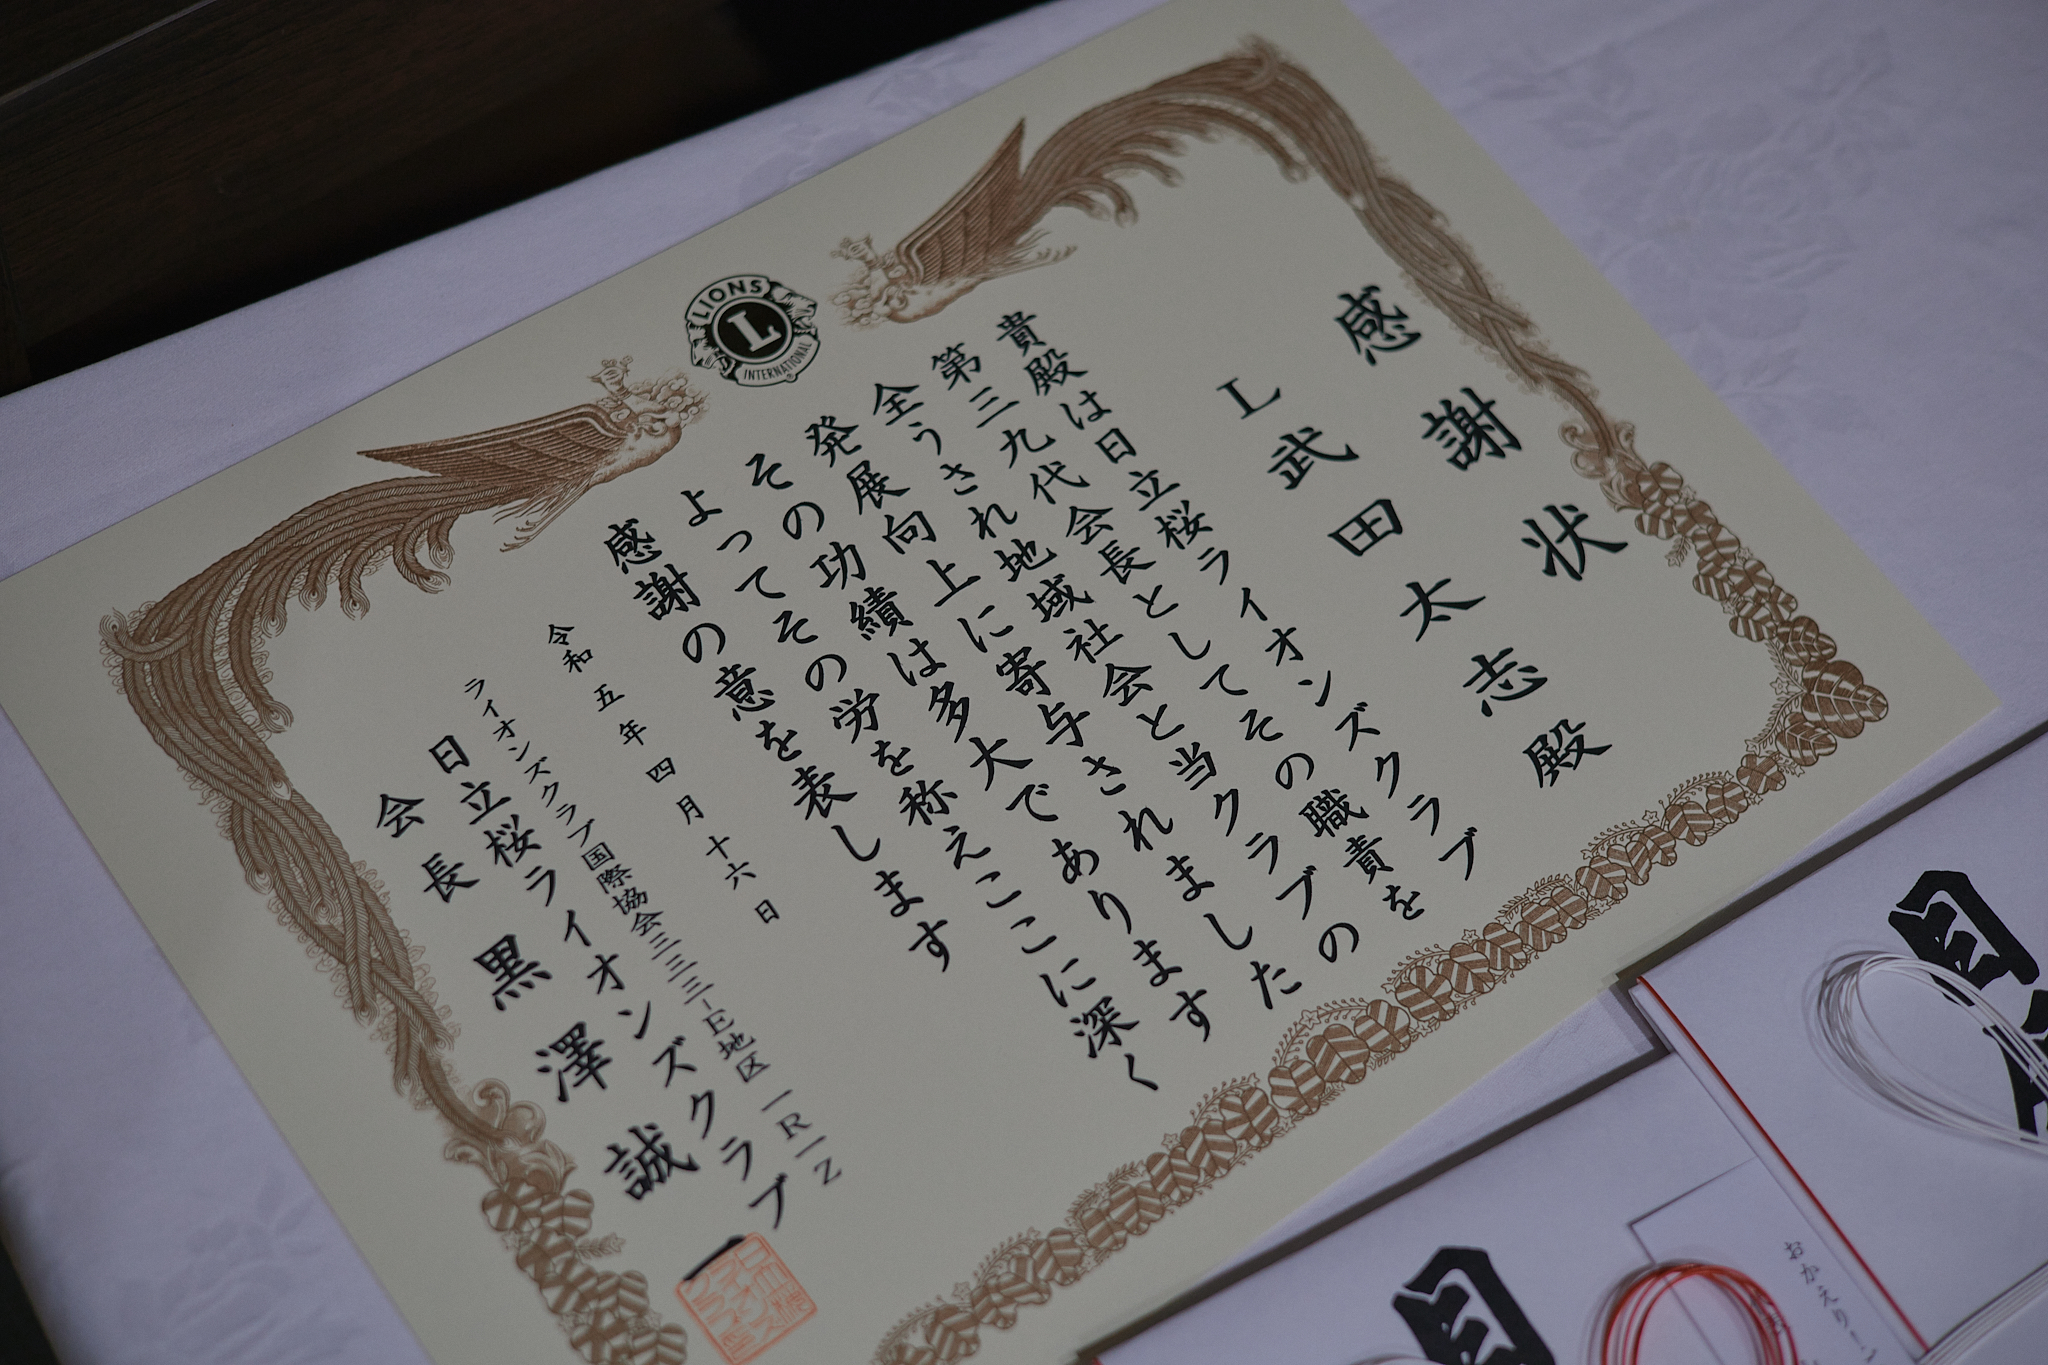 LIONS
L
INTERNATIONAL
感謝状
L 武田太志殿
貴殿は日立桜ライオンズクラブ
第三九代会長としてその職責を
全うされ地域社会と当クラブの
発展向上に寄与されました
その功績は多大であります
よってその労を称えここに深く
感謝の意を表します
令和五年四月十六日
ライオンズクラブ国際協会三三三-E地区一R一Z
日立桜ライオンズクラブ
会長 黒澤誠一
目
目
おかえり